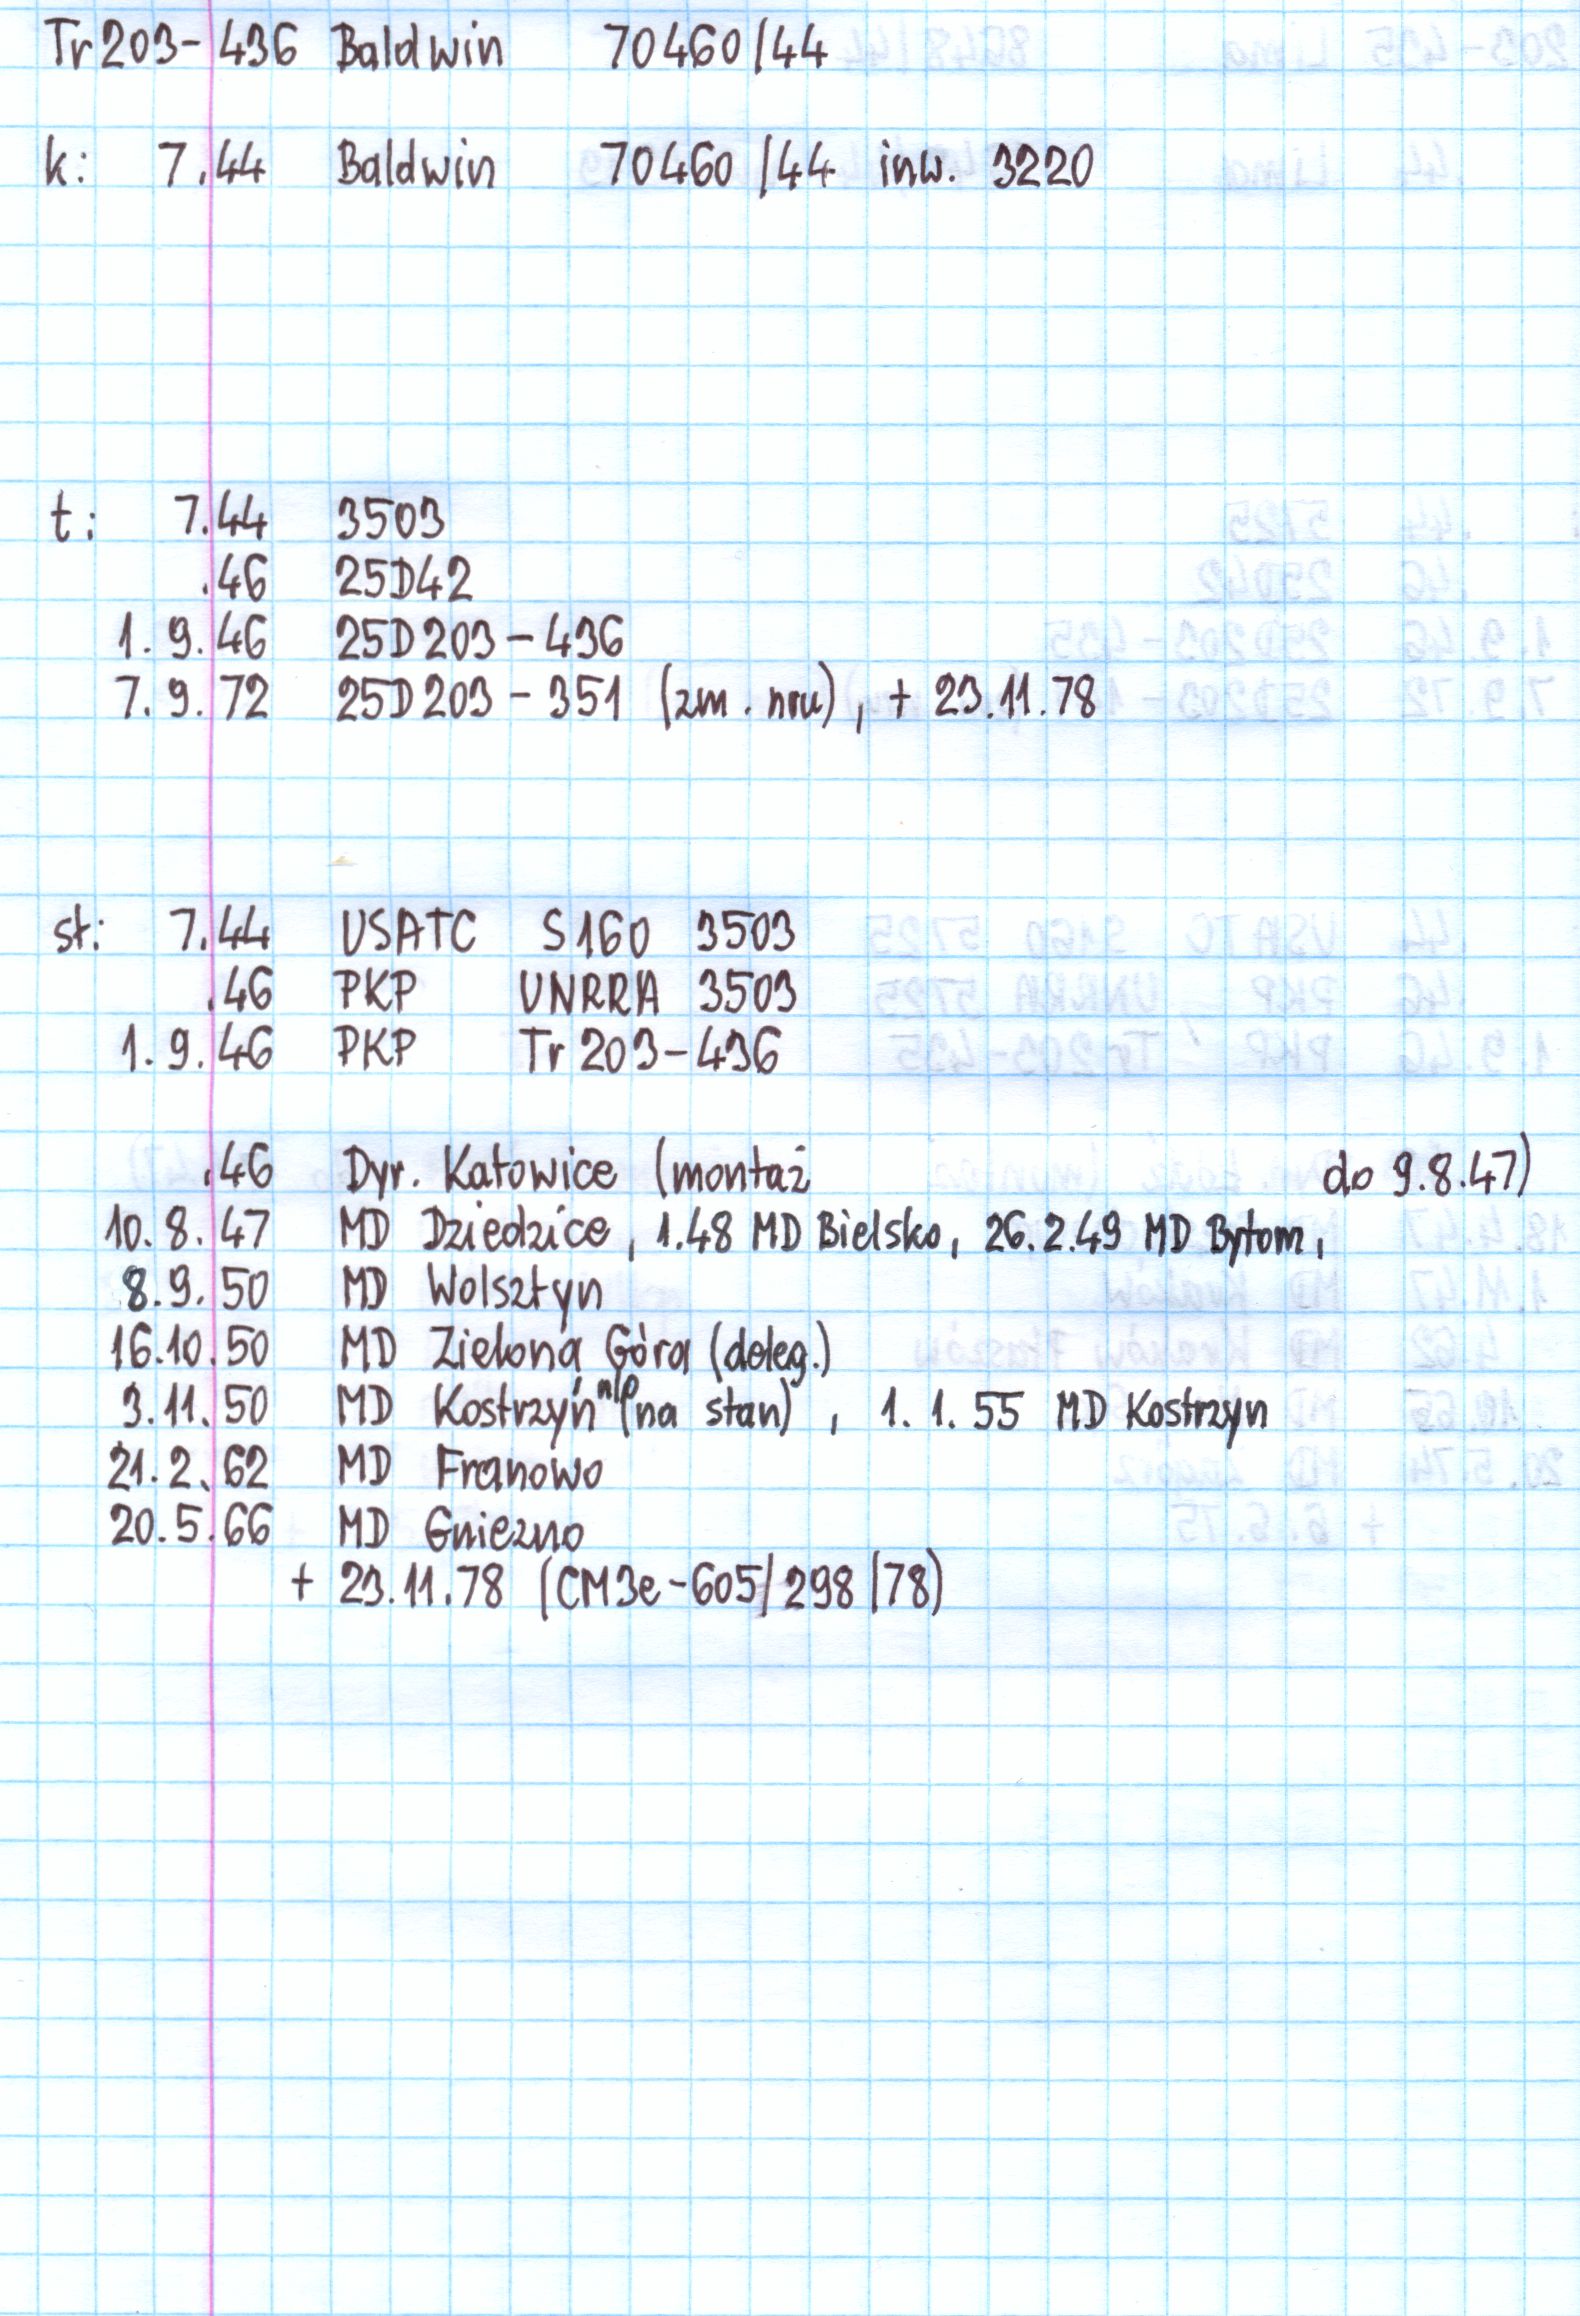 Tr203-436 Baldwin 70460/44
k: 7.44 Baldwin 70460/44 inw. 3220
t: 7.44 3503
.46 25D42
1.9.46 25D203-436
7.9.72 25D203-351 (zm. nru), + 23.11.78
st: 7.44 USATC S160 3503
.46 PKP UNRRA 3503
1.9.46 PKP Tr203-436
.46 Dyr. Katowice (montaż do 9.8.47)
10.8.47 MD Dziedzice, 1.48 MD Bielsko, 26.2.49 MD Bytom,
8.9.50 MD Wolsztyn
16.10.50 MD Zielona Góra (deleg.)
3.11.50 MD Kostrzyń n/O (na stan), 1.1.55 MD Kostrzyn
21.2.62 MD Franowo
20.5.66 MD Gniezno
+ 23.11.78 (CM3e-605/298/78)